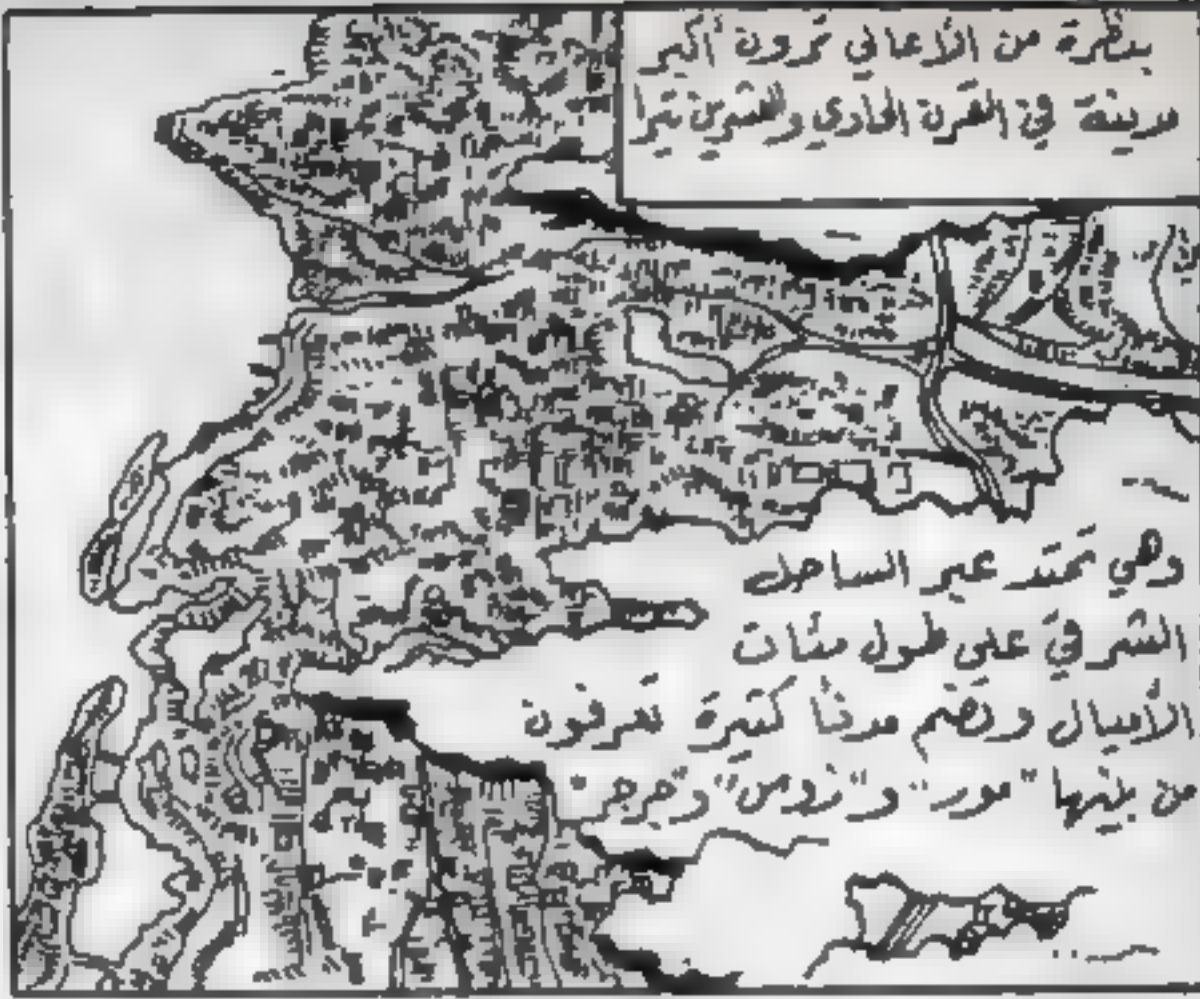 بنظرة من الأعالي ترون أكبر
مدينة في القرن الحادي والعشرين تترا
وهي تمتد عبر الساحل
الشرقي على طول مئات
الأميال وتضم مدنًا كثيرة تعرفون
من بينها "مور" و"زوس" و"جرجر"